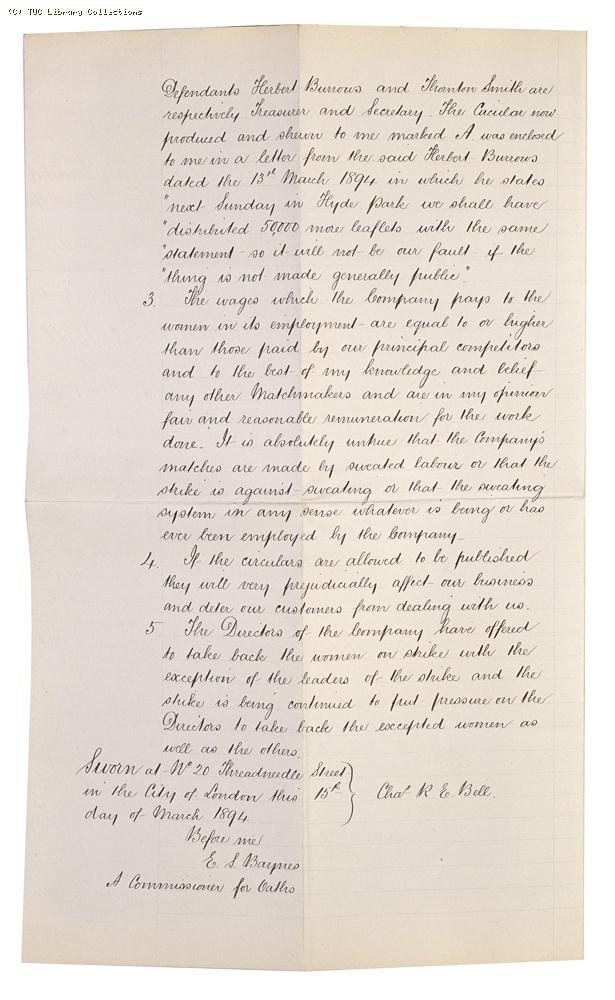 (C) TUC Library Collections
Defendants Herbert Burrows and Thornton Smith are
respectively Treasurer and Secretary. The Circular now
produced and shewn to me marked A was enclosed
to me in a letter from the said Herbert Burrows
dated the 13th March 1894 in which he states
"next Sunday in Hyde Park we shall have
"distributed 50,000 more leaflets with the same
"statement so it will not be our fault if the
"thing is not made generally public".
3. The wages which the Company pays to the
women in its employment are equal to or higher
than those paid by our principal competitors
and to the best of my knowledge and belief
any other Matchmakers and are in my opinion
fair and reasonable remuneration for the work
done. It is absolutely untrue that the Company's
matches are made by sweated labour or that the
strike is against sweating or that the sweating
system in any sense whatever is being or has
ever been employed by the Company.
4. If the circulars are allowed to be published
they will very prejudicially affect our business
and deter our customers from dealing with us.
5. The Directors of the Company have offered
to take back the women on strike with the
exception of the leaders of the strike and the
strike is being continued to put pressure on the
Directors to take back the excepted women as
well as the others.
Sworn at No 20 Threadneedle Street
in the City of London this 15th } Chas R. E. Bell.
day of March 1894
Before me
E. S. Baynes
A Commissioner for Oaths